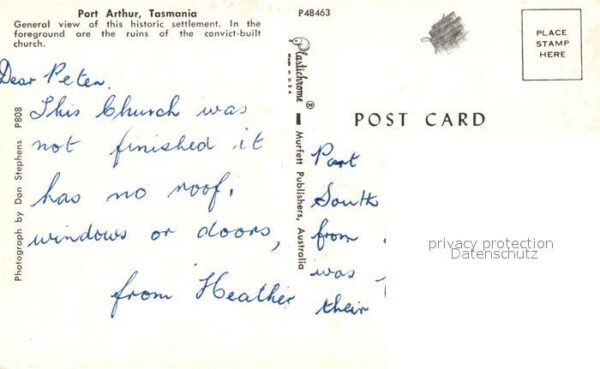 Port Arthur, Tasmania
General view of this historic settlement. In the
foreground are the ruins of the convict-built
church.
Dear Peter.
This Church was
not finished it
has no roof,
windows or doors,
from Heather
Photograph by Don Stephens P808
P48463
Plastichrome ®
MADE IN U.S.A.
Murfett Publishers, Australia
PLACE
STAMP
HERE
POST CARD
Port
South
from
was
their
privacy protection
Datenschutz